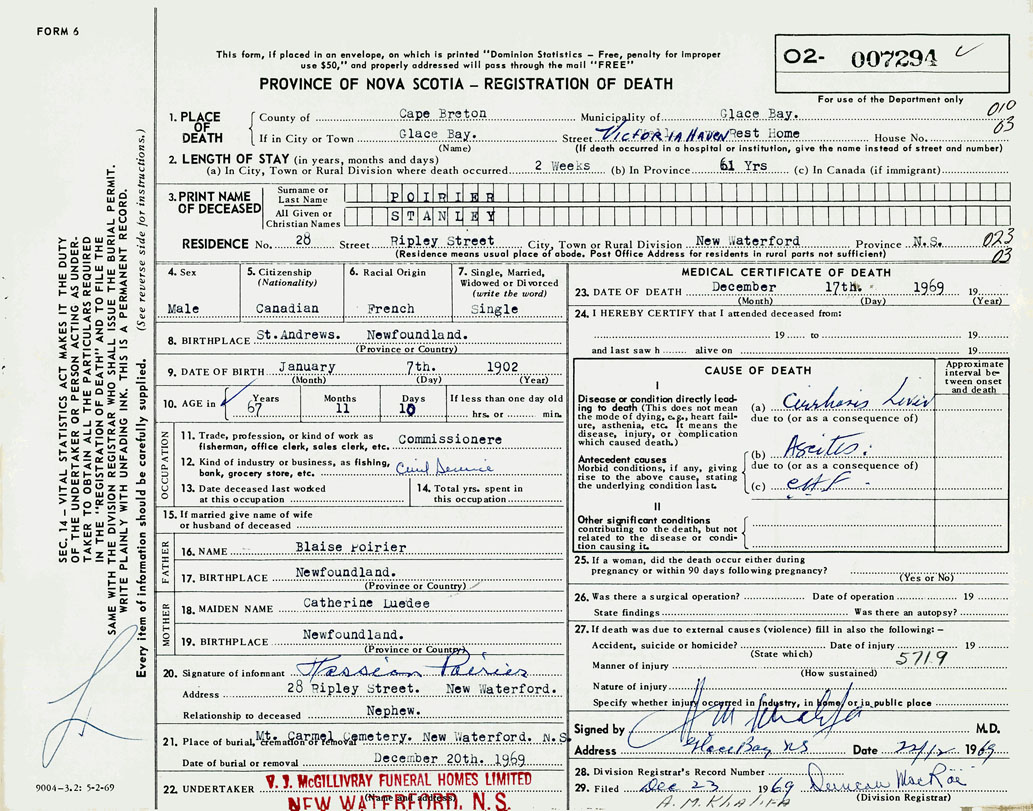 FORM 6
This form, if placed in an envelope, on which is printed "Dominion Statistics – Free, penalty for improper
use $50," and properly addressed will pass through the mail "FREE"
PROVINCE OF NOVA SCOTIA – REGISTRATION OF DEATH
O2- 007294
For use of the Department only
010
03
1. PLACE OF DEATH
County of Cape Breton Municipality of Glace Bay.
If in City or Town Glace Bay. Street VICTORIA HAVEN Rest Home House No.
(Name) (If death occurred in a hospital or institution, give the name instead of street and number)
2. LENGTH OF STAY (in years, months and days)
(a) In City, Town or Rural Division where death occurred 2 Weeks (b) In Province 61 Yrs (c) In Canada (if immigrant)
3. PRINT NAME OF DECEASED
Surname or Last Name POIRIER
All Given or Christian Names STANLEY
RESIDENCE No. 28 Street Ripley Street City, Town or Rural Division New Waterford Province N.S. 023
03
(Residence means usual place of abode. Post Office Address for residents in rural parts not sufficient)
SEC. 14 – VITAL STATISTICS ACT MAKES IT THE DUTY
OF THE UNDERTAKER OR PERSON ACTING AS UNDER-
TAKER TO OBTAIN ALL THE PARTICULARS REQUIRED
IN THE "REGISTRATION OF DEATH" AND TO FILE THE
SAME WITH THE DIVISION REGISTRAR WHO SHALL ISSUE THE BURIAL PERMIT.
WRITE PLAINLY WITH UNFADING INK. THIS IS A PERMANENT RECORD.
Every item of information should be carefully supplied. (See reverse side for instructions.)
4. Sex
Male
5. Citizenship
(Nationality)
Canadian
6. Racial Origin
French
7. Single, Married,
Widowed or Divorced
(write the word)
Single
8. BIRTHPLACE St.Andrews. Newfoundland.
(Province or Country)
9. DATE OF BIRTH January 7th. 1902
(Month) (Day) (Year)
10. AGE in Years 67 Months 11 Days 10 If less than one day old
hrs. or min.
OCCUPATION
11. Trade, profession, or kind of work as
fisherman, office clerk, sales clerk, etc. Commissionere
12. Kind of industry or business, as fishing,
bank, grocery store, etc. Civil Service
13. Date deceased last worked
at this occupation
14. Total yrs. spent in
this occupation
15. If married give name of wife
or husband of deceased
FATHER
16. NAME Blaise Poirier
17. BIRTHPLACE Newfoundland.
(Province or Country)
MOTHER
18. MAIDEN NAME Catherine Luedee
19. BIRTHPLACE Newfoundland.
(Province or Country)
20. Signature of informant Poirier
Address 28 Ripley Street. New Waterford.
Relationship to deceased Nephew.
21. Place of burial, cremation or removal Mt. Carmel Cemetery. New Waterford. N.S.
Date of burial or removal December 20th. 1969
22. UNDERTAKER V. J. McGILLIVRAY FUNERAL HOMES LIMITED
(Name and address)
NEW WATERFORD, N.S.
9004-3.2: 5-2-69
MEDICAL CERTIFICATE OF DEATH
23. DATE OF DEATH December 17th. 1969 19
(Month) (Day) (Year)
24. I HEREBY CERTIFY that I attended deceased from:
19 to 19
and last saw h alive on 19
CAUSE OF DEATH
Approximate
interval be-
tween onset
and death
I
Disease or condition directly lead-
ing to death (This does not mean
the mode of dying, e.g., heart fail-
ure, asthenia, etc. It means the
disease, injury, or complication
which caused death.)
(a) Cirrhosis Liver
due to (or as a consequence of)
Antecedent causes
Morbid conditions, if any, giving
rise to the above cause, stating
the underlying condition last.
(b) Ascites.
due to (or as a consequence of)
(c) CHF
II
Other significant conditions
contributing to the death, but not
related to the disease or condi-
tion causing it.
25. If a woman, did the death occur either during
pregnancy or within 90 days following pregnancy?
(Yes or No)
26. Was there a surgical operation? Date of operation 19
State findings Was there an autopsy?
27. If death was due to external causes (violence) fill in also the following: –
Accident, suicide or homicide? Date of injury 19
(State which) 5719
Manner of injury
(How sustained)
Nature of injury
Specify whether injury occurred in Industry, in home, or in public place
Signed by M.D.
Address Glace Bay NS Date 22/12 1969
28. Division Registrar's Record Number
29. Filed Dec 23 1969 Duncan MacRae
(Division Registrar)
A.M.